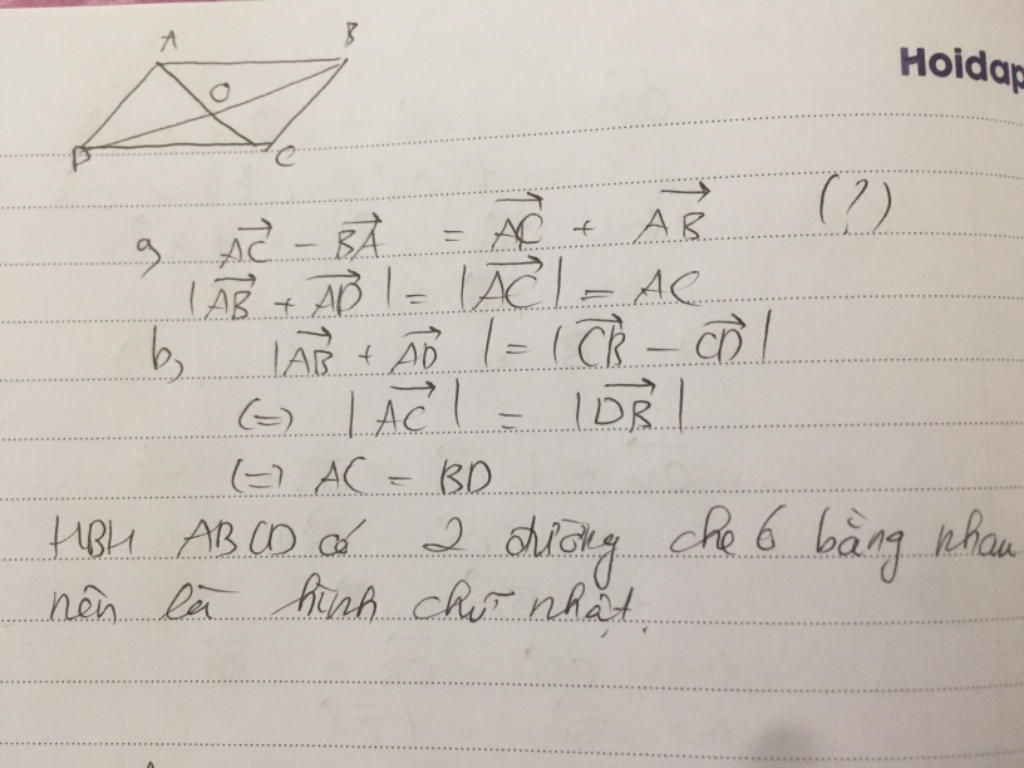 A B
Hoidap
O
D C
a, AC→ - BA→ = AC→ + AB→ (?)
|AB→ + AD→| = |AC→| = AC
b, |AB→ + AD→| = |CB→ - CD→|
(=) |AC→| = |DB→|
(=) AC = BD
HBH ABCD có 2 đường chéo bằng nhau
nên là hình chữ nhật.